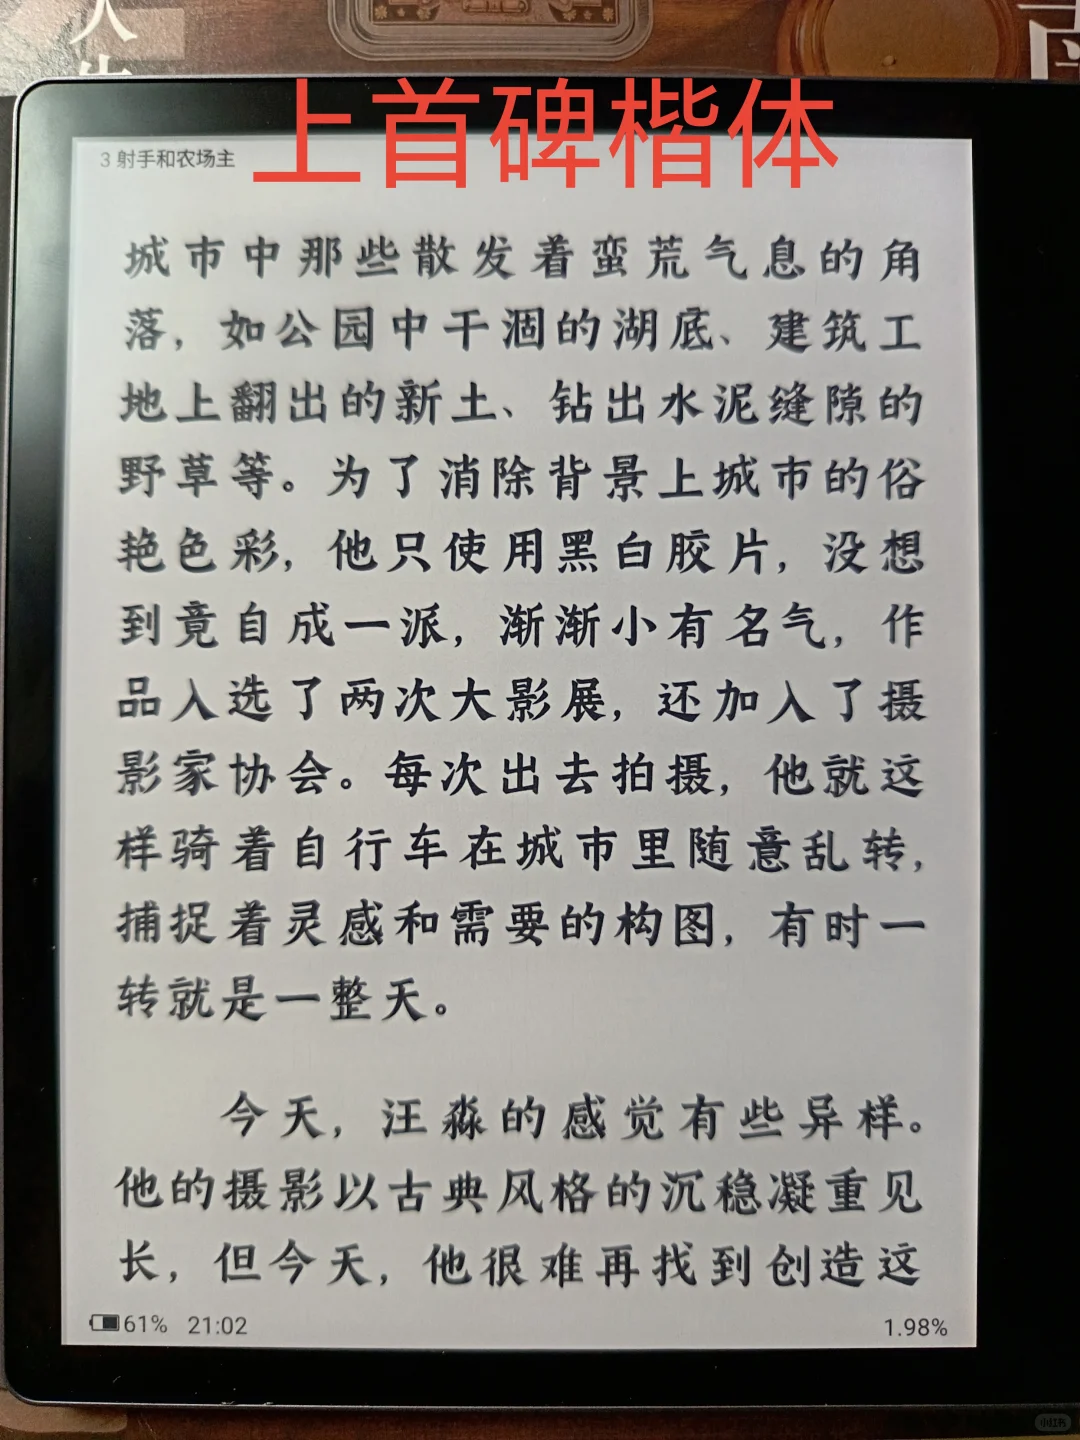 人生
上首碑楷体
3 射手和农场主
城市中那些散发着蛮荒气息的角
落，如公园中干涸的湖底、建筑工
地上翻出的新土、钻出水泥缝隙的
野草等。为了消除背景上城市的俗
艳色彩，他只使用黑白胶片，没想
到竟自成一派，渐渐小有名气，作
品入选了两次大影展，还加入了摄
影家协会。每次出去拍摄，他就这
样骑着自行车在城市里随意乱转，
捕捉着灵感和需要的构图，有时一
转就是一整天。
今天，汪淼的感觉有些异样。
他的摄影以古典风格的沉稳凝重见
长，但今天，他很难再找到创造这
61% 21:02
1.98%
小红书